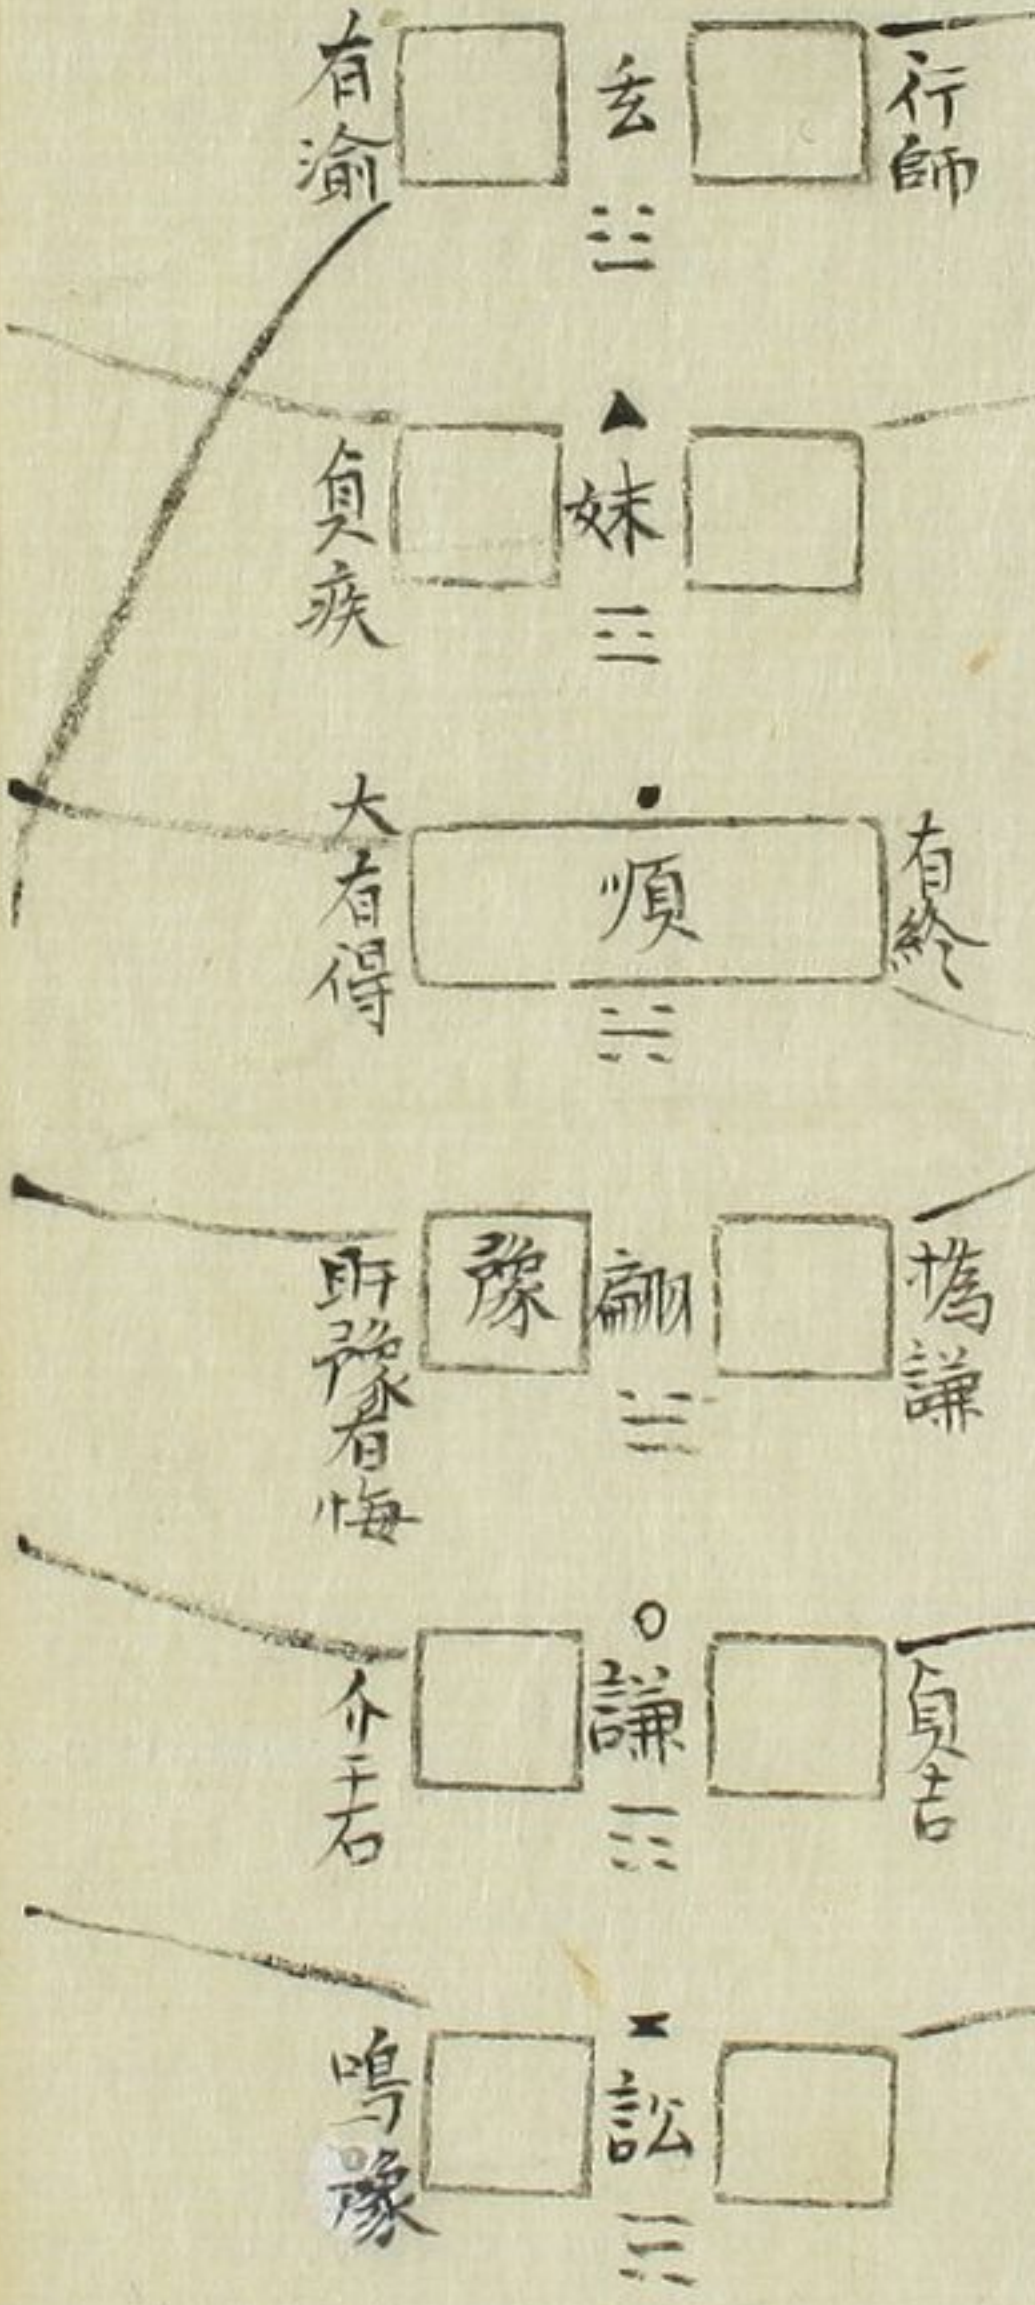 行師
有渝
妹
貞疾
有終
順
大有得
撝謙
翩
豫
盱豫有悔
貞吉
謙
介于石
訟
鳴豫